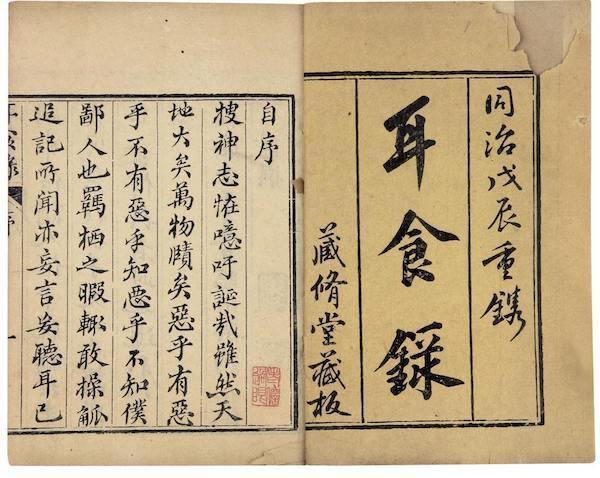 同治戊辰重鐫
耳食錄
藏脩堂藏板
自序
搜神志恠噫吁誕哉雖然天
地大矣萬物賾矣惡乎有惡
乎不有惡乎知惡乎不知僕
鄙人也羈栖之暇輒敢操觚
追記所聞亦妄言妄聽耳已
耳食錄 序 一